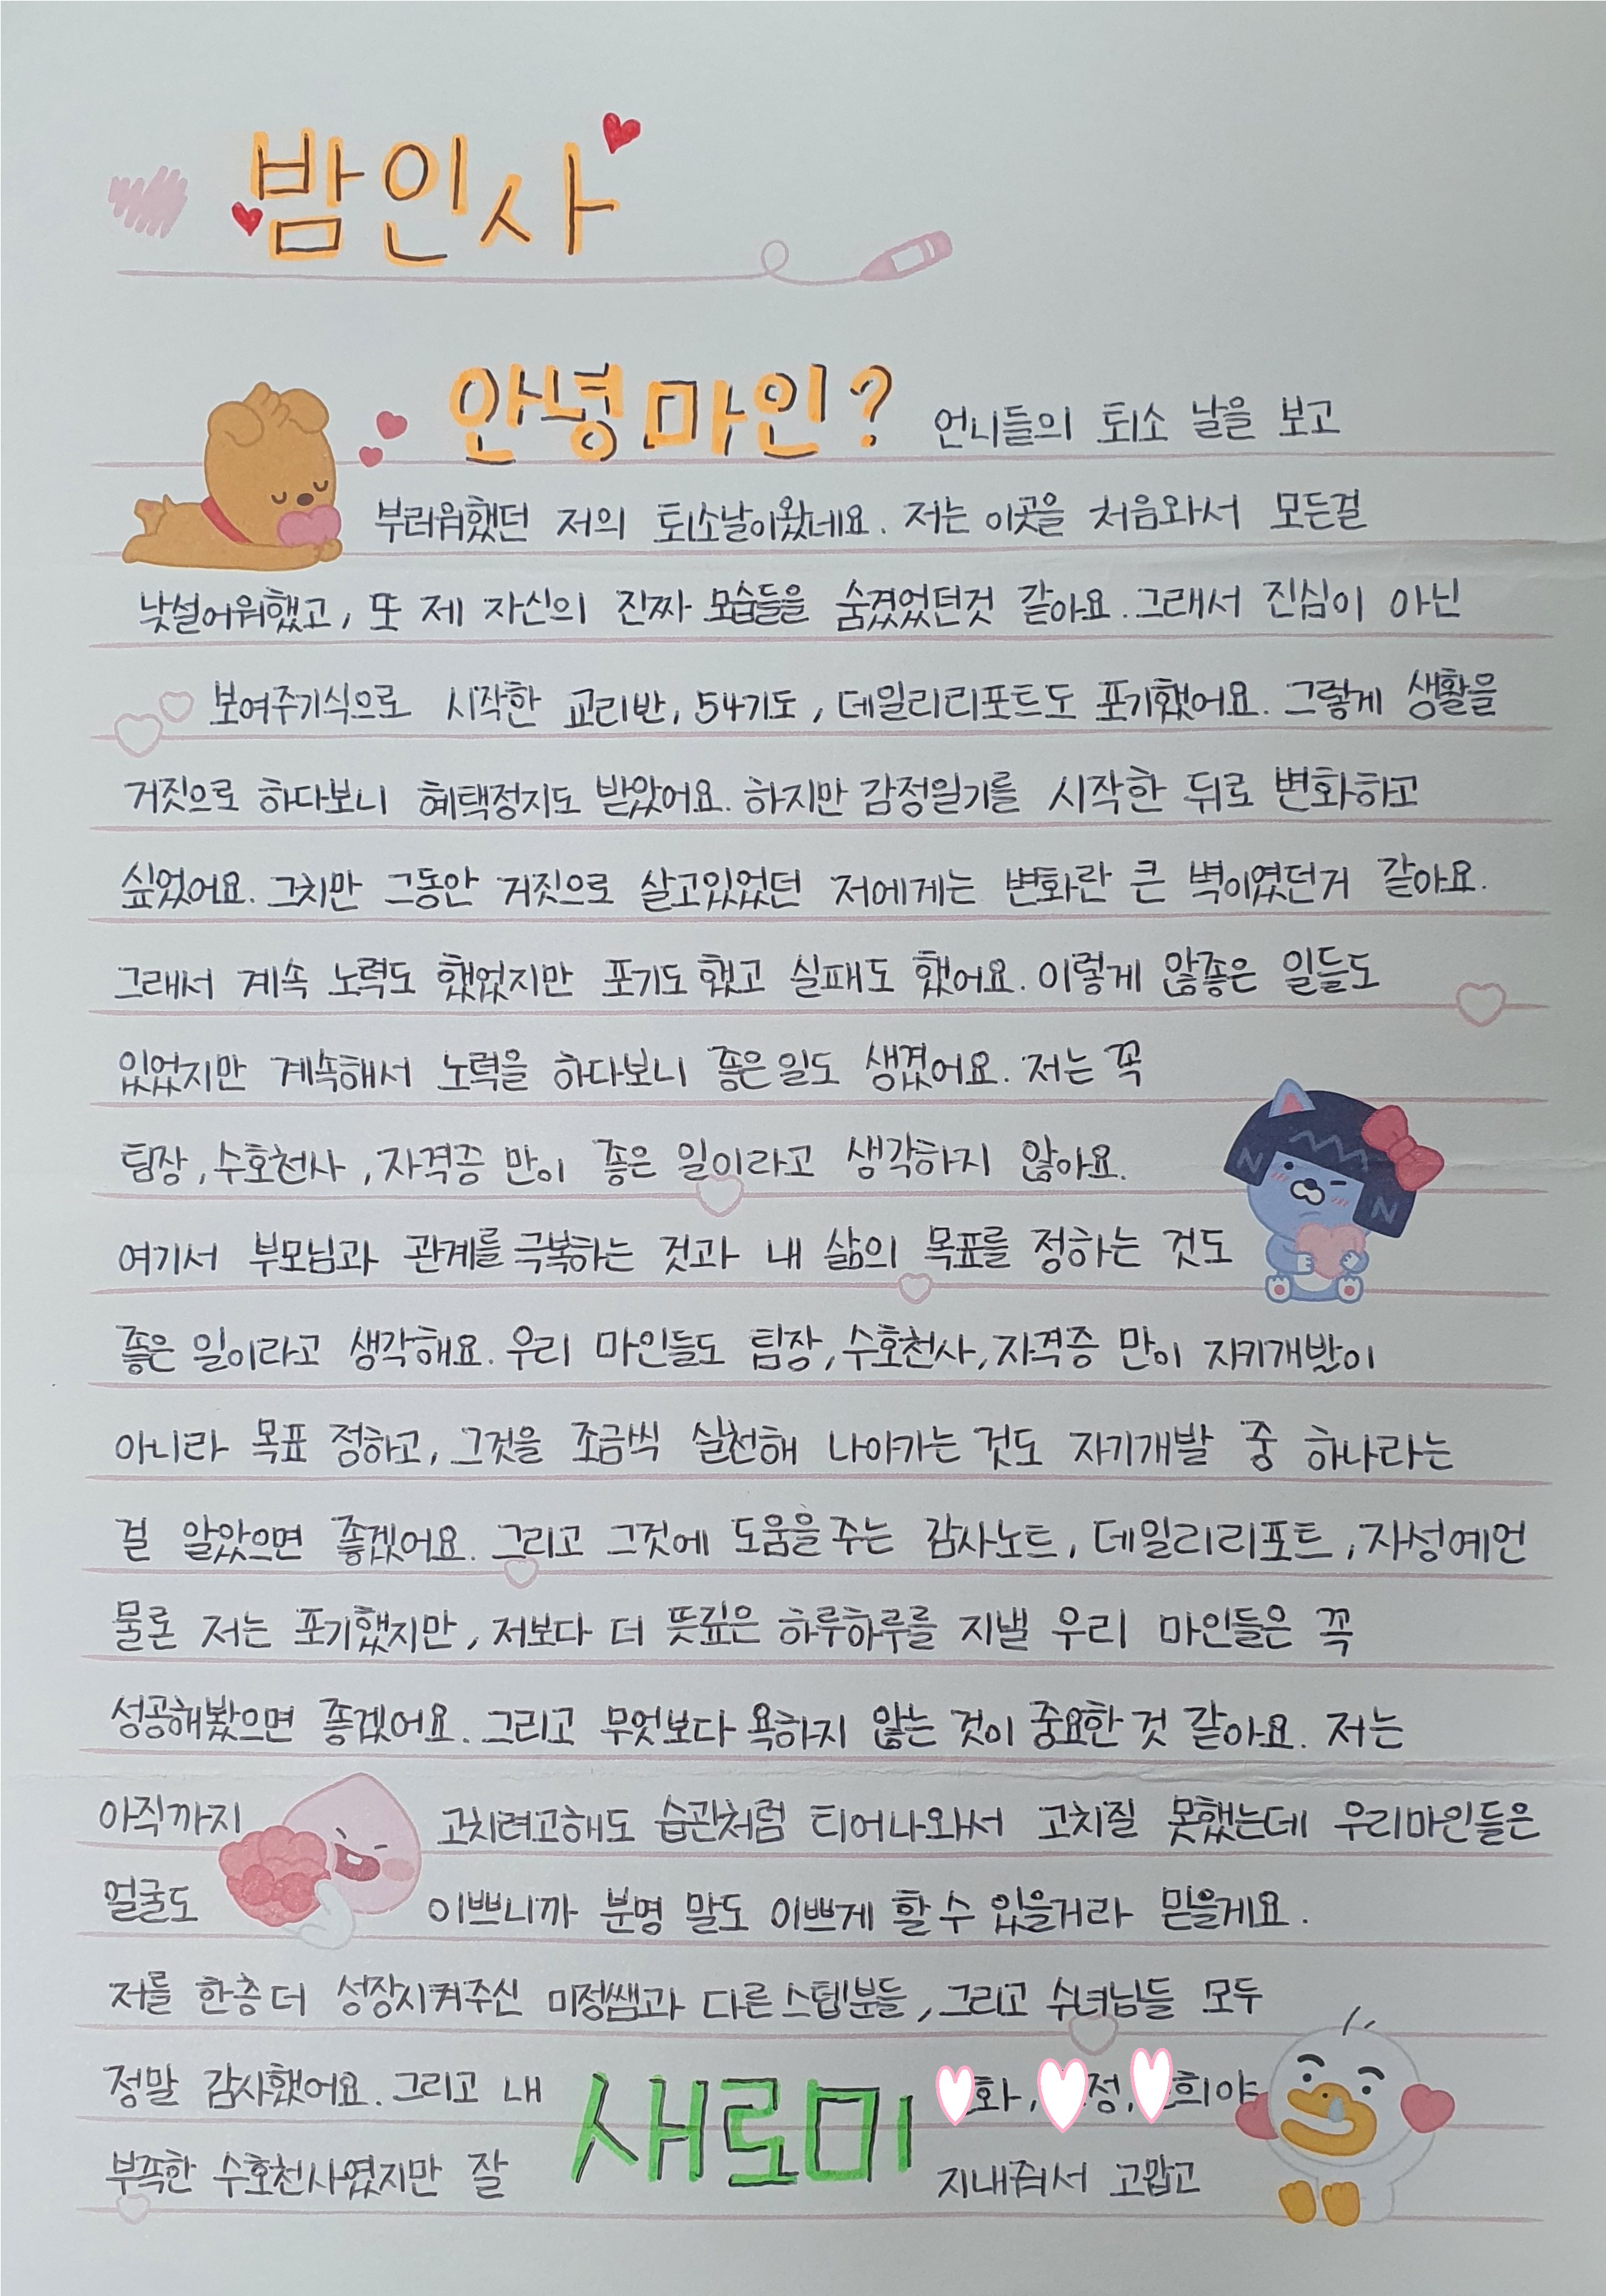 밤인사
안녕마인? 언니들의 퇴소 날을 보고
부러워했던 저의 퇴소날이왔네요. 저는 이곳을 처음와서 모든걸
낯설어워했고, 또 제 자신의 진짜 모습들을 숨겼었던것 같아요. 그래서 진심이 아닌
보여주기식으로 시작한 교리반, 54기도, 데일리리포트도 포기했어요. 그렇게 생활을
거짓으로 하다보니 혜택정지도 받았어요. 하지만 감정일기를 시작한 뒤로 변화하고
싶었어요. 그치만 그동안 거짓으로 살고있었던 저에게는 변화란 큰 벽이였던거 같아요.
그래서 계속 노력도 했었지만 포기도 했고 실패도 했어요. 이렇게 않좋은 일들도
있었지만 계속해서 노력을 하다보니 좋은일도 생겼어요. 저는 꼭
팀장, 수호천사, 자격증 만이 좋은 일이라고 생각하지 않아요.
여기서 부모님과 관계를 극복하는 것과 내 삶의 목표를 정하는 것도
좋은 일이라고 생각해요. 우리 마인들도 팀장, 수호천사, 자격증 만이 지키개발이
아니라 목표 정하고, 그것을 조금씩 실천해 나아가는 것도 자기개발 중 하나라는
걸 알았으면 좋겠어요. 그리고 그것에 도움을 주는 감사노트, 데일리리포트, 자성예언
물론 저는 포기했지만, 저보다 더 뜻깊은 하루하루를 지낼 우리 마인들은 꼭
성공해봤으면 좋겠어요. 그리고 무엇보다 욕하지 않는 것이 중요한 것 같아요. 저는
아직까지 고치려고해도 습관처럼 티어나와서 고치질 못했는데 우리마인들은
얼굴도 이쁘니까 분명 말도 이쁘게 할 수 있을거라 믿을게요.
저를 한층 더 성장시켜주신 미정쌤과 다른 스텝분들, 그리고 수녀님들 모두
정말 감사했어요. 그리고 내 새로미 화, 정, 희야
부족한 수호천사였지만 잘 지내줘서 고맙고